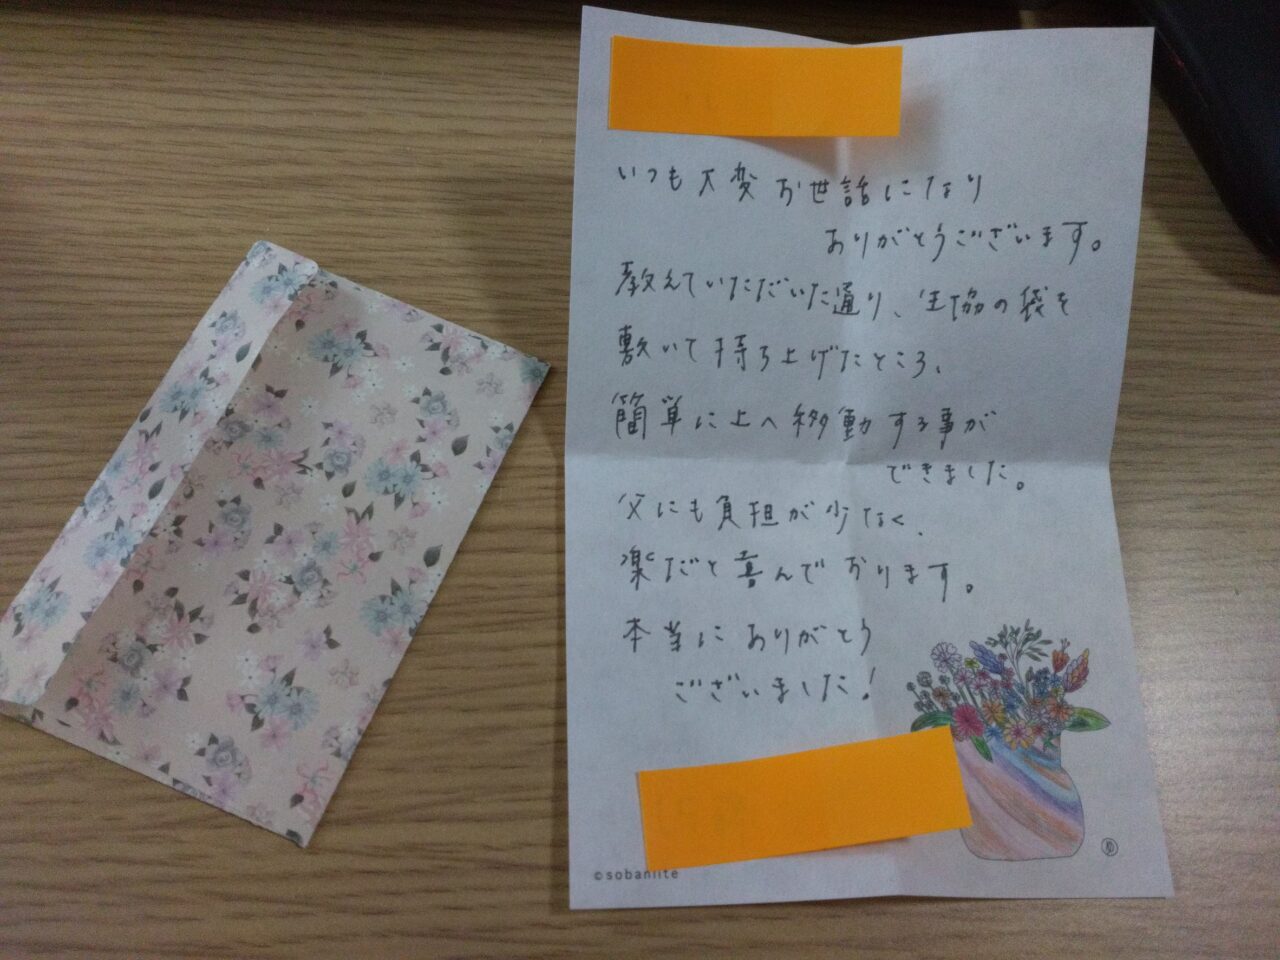 いつも大変お世話になり
ありがとうございます。
教えていただいた通り、生協の袋を
敷いて持ち上げたところ、
簡単に上へ移動する事が
できました。
父にも負担が少なく、
楽だと喜んでおります。
本当にありがとう
ございました!
©sobaniite